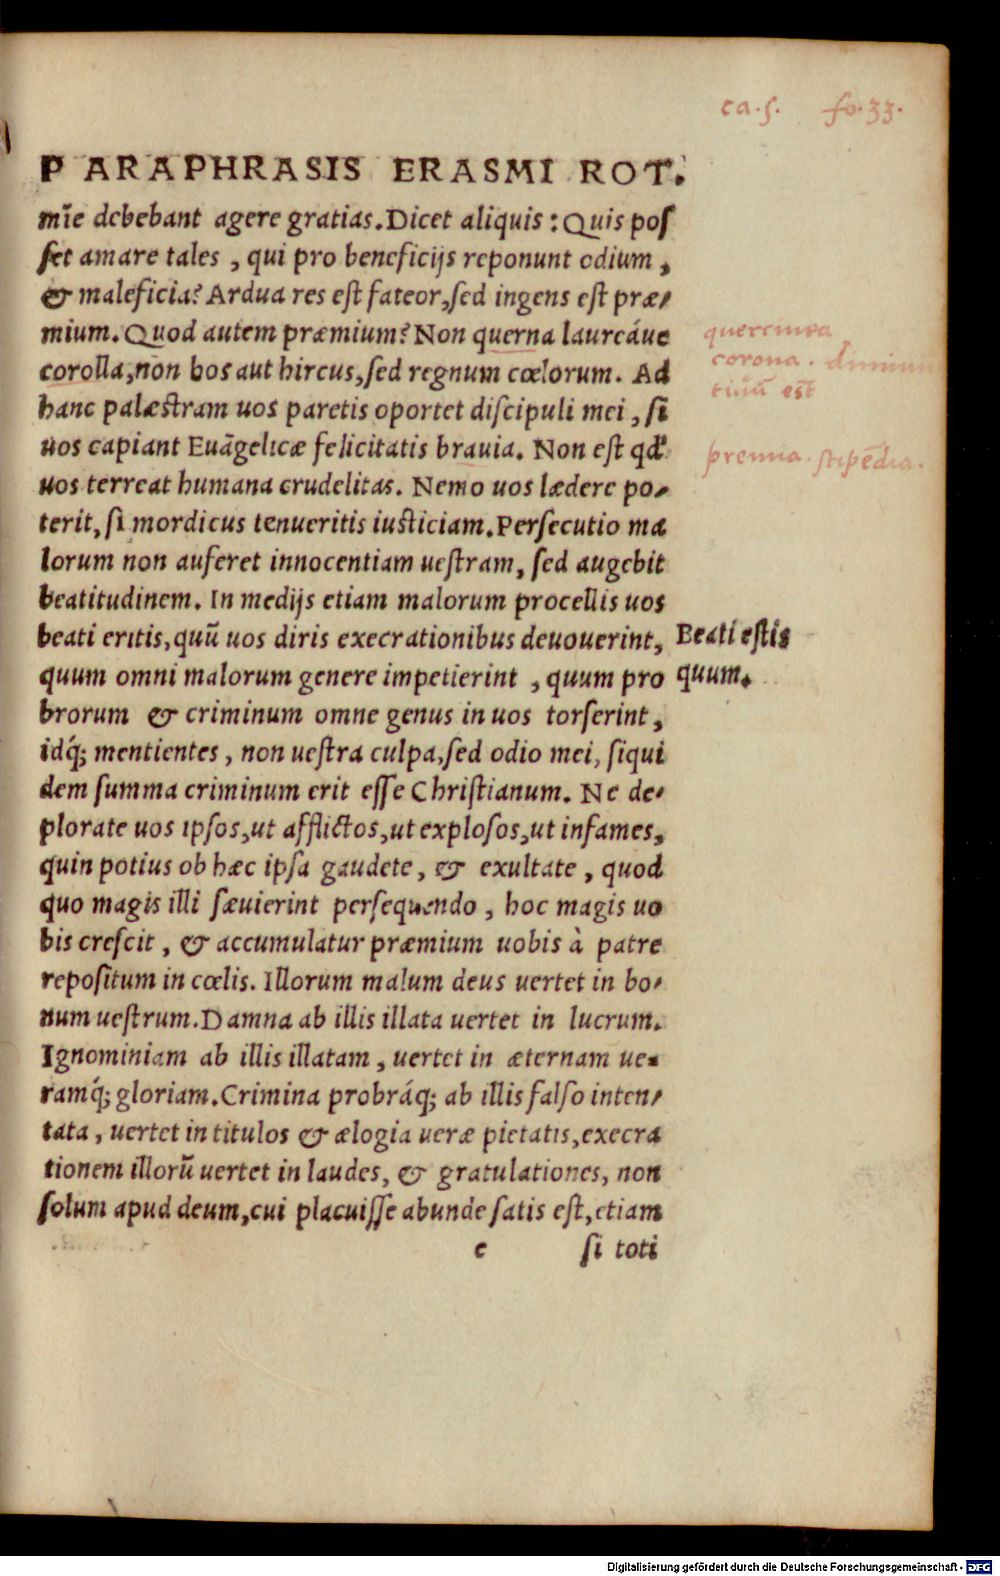 ca.5. fo.33.
PARAPHRASIS ERASMI ROT.
mīe debebant agere gratias. Dicet aliquis : Quis pos
set amare tales , qui pro beneficijs reponunt odium ,
& maleficia? Ardua res est fateor, sed ingens est præ-
mium. Quod autem præmium? Non querna laureáue
corolla, non bos aut hircus, sed regnum cœlorum. Ad
hanc palæstram uos paretis oportet discipuli mei , si
uos capiant Euāgelicæ felicitatis brauia. Non est qđ
uos terreat humana crudelitas. Nemo uos lædere po-
terit, si mordicus tenueritis iusticiam. Persecutio ma
lorum non auferet innocentiam uestram, sed augebit
beatitudinem. In medijs etiam malorum procellis uos
beati eritis, quū uos diris execrationibus deuouerint,
quum omni malorum genere impetierint , quum pro
brorum & criminum omne genus in uos torserint ,
idq́; mentientes , non uestra culpa, sed odio mei, siqui
dem summa criminum erit esse Christianum. Ne de-
plorate uos ipsos, ut afflictos, ut explosos, ut infames,
quin potius ob hæc ipsa gaudete , & exultate , quod
quo magis illi sæuierint persequendo , hoc magis uo
bis crescit , & accumulatur præmium uobis à patre
repositum in cœlis. Illorum malum deus uertet in bo-
num uestrum. Damna ab illis illata uertet in lucrum.
Ignominiam ab illis illatam , uertet in æternam ue-
ramq́; gloriam. Crimina probráq; ab illis falso inten-
tata , uertet in titulos & ælogia ueræ pietatis, execra
tionem illorū uertet in laudes, & gratulationes, non
solum apud deum, cui placuisse abunde satis est, etiam
e si toti
quercinea
corona . diminu
tiuū est
premia . stipēdia .
Beati estis
quum.
Digitalisierung gefördert durch die Deutsche Forschungsgemeinschaft - DFG